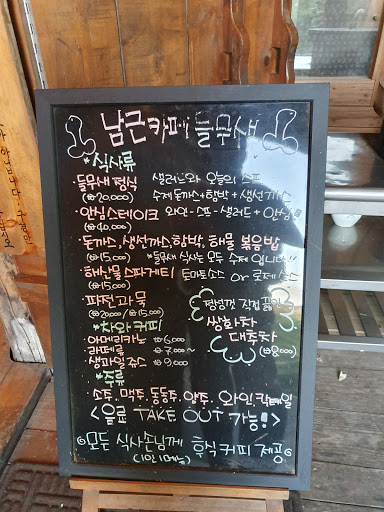 남근카페 들무새
*식사류
들무새 정식 샐러드와 오늘의 스프
(₩20,000) 수제 돈까스+함박+생선까스
안심스테이크 와인·스프·샐러드+안심
(₩40,000)
돈까스, 생선까스, 함박, 해물 볶음밥
(₩15,000) *들무새 식사는 모두 수제입니다**
해산물스파게티 토마토소스 or 로제소스
(₩15,000)
파전과 묵
(₩20,000 / ₩15,000)
정성껏 직접 끓인
쌍화차
대추차
(₩8,000)
*차와 커피
아메리카노 ₩6,000
라떼류 ₩7,000~
생과일쥬스 ₩9,000
*주류
소주, 맥주, 동동주, 양주, 와인칵테일
<음료 TAKE OUT 가능!>
모든 식사손님께 후식커피 제공
(1인 1메뉴)